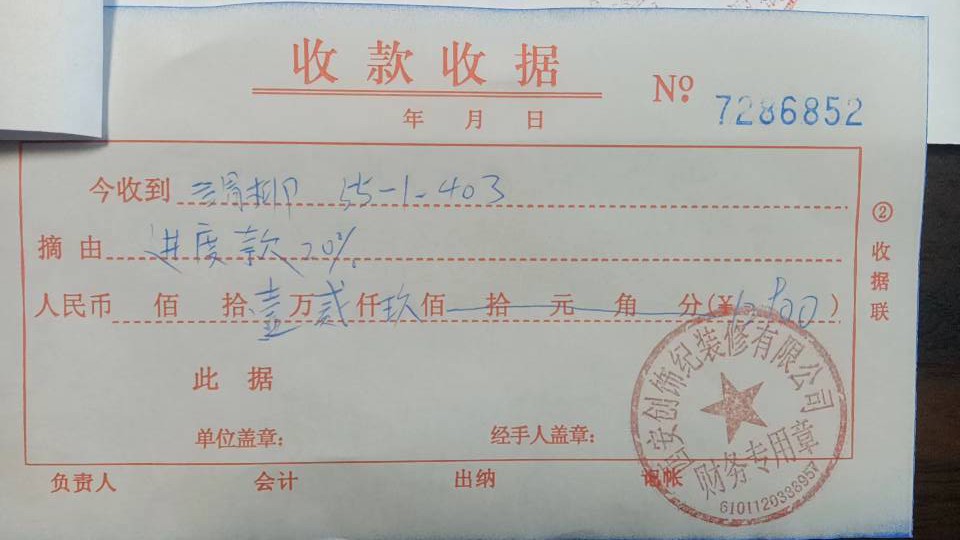 收款收据
№ 7286852
年 月 日
今收到 55-1-403
摘由 进度款20%
人民币 佰 拾壹万贰仟玖佰 拾 元 角 分(¥ )
此据
单位盖章: 经手人盖章:
负责人 会计 出纳
②收据联
西安创饰纪装修有限公司
财务专用章
6101120388957